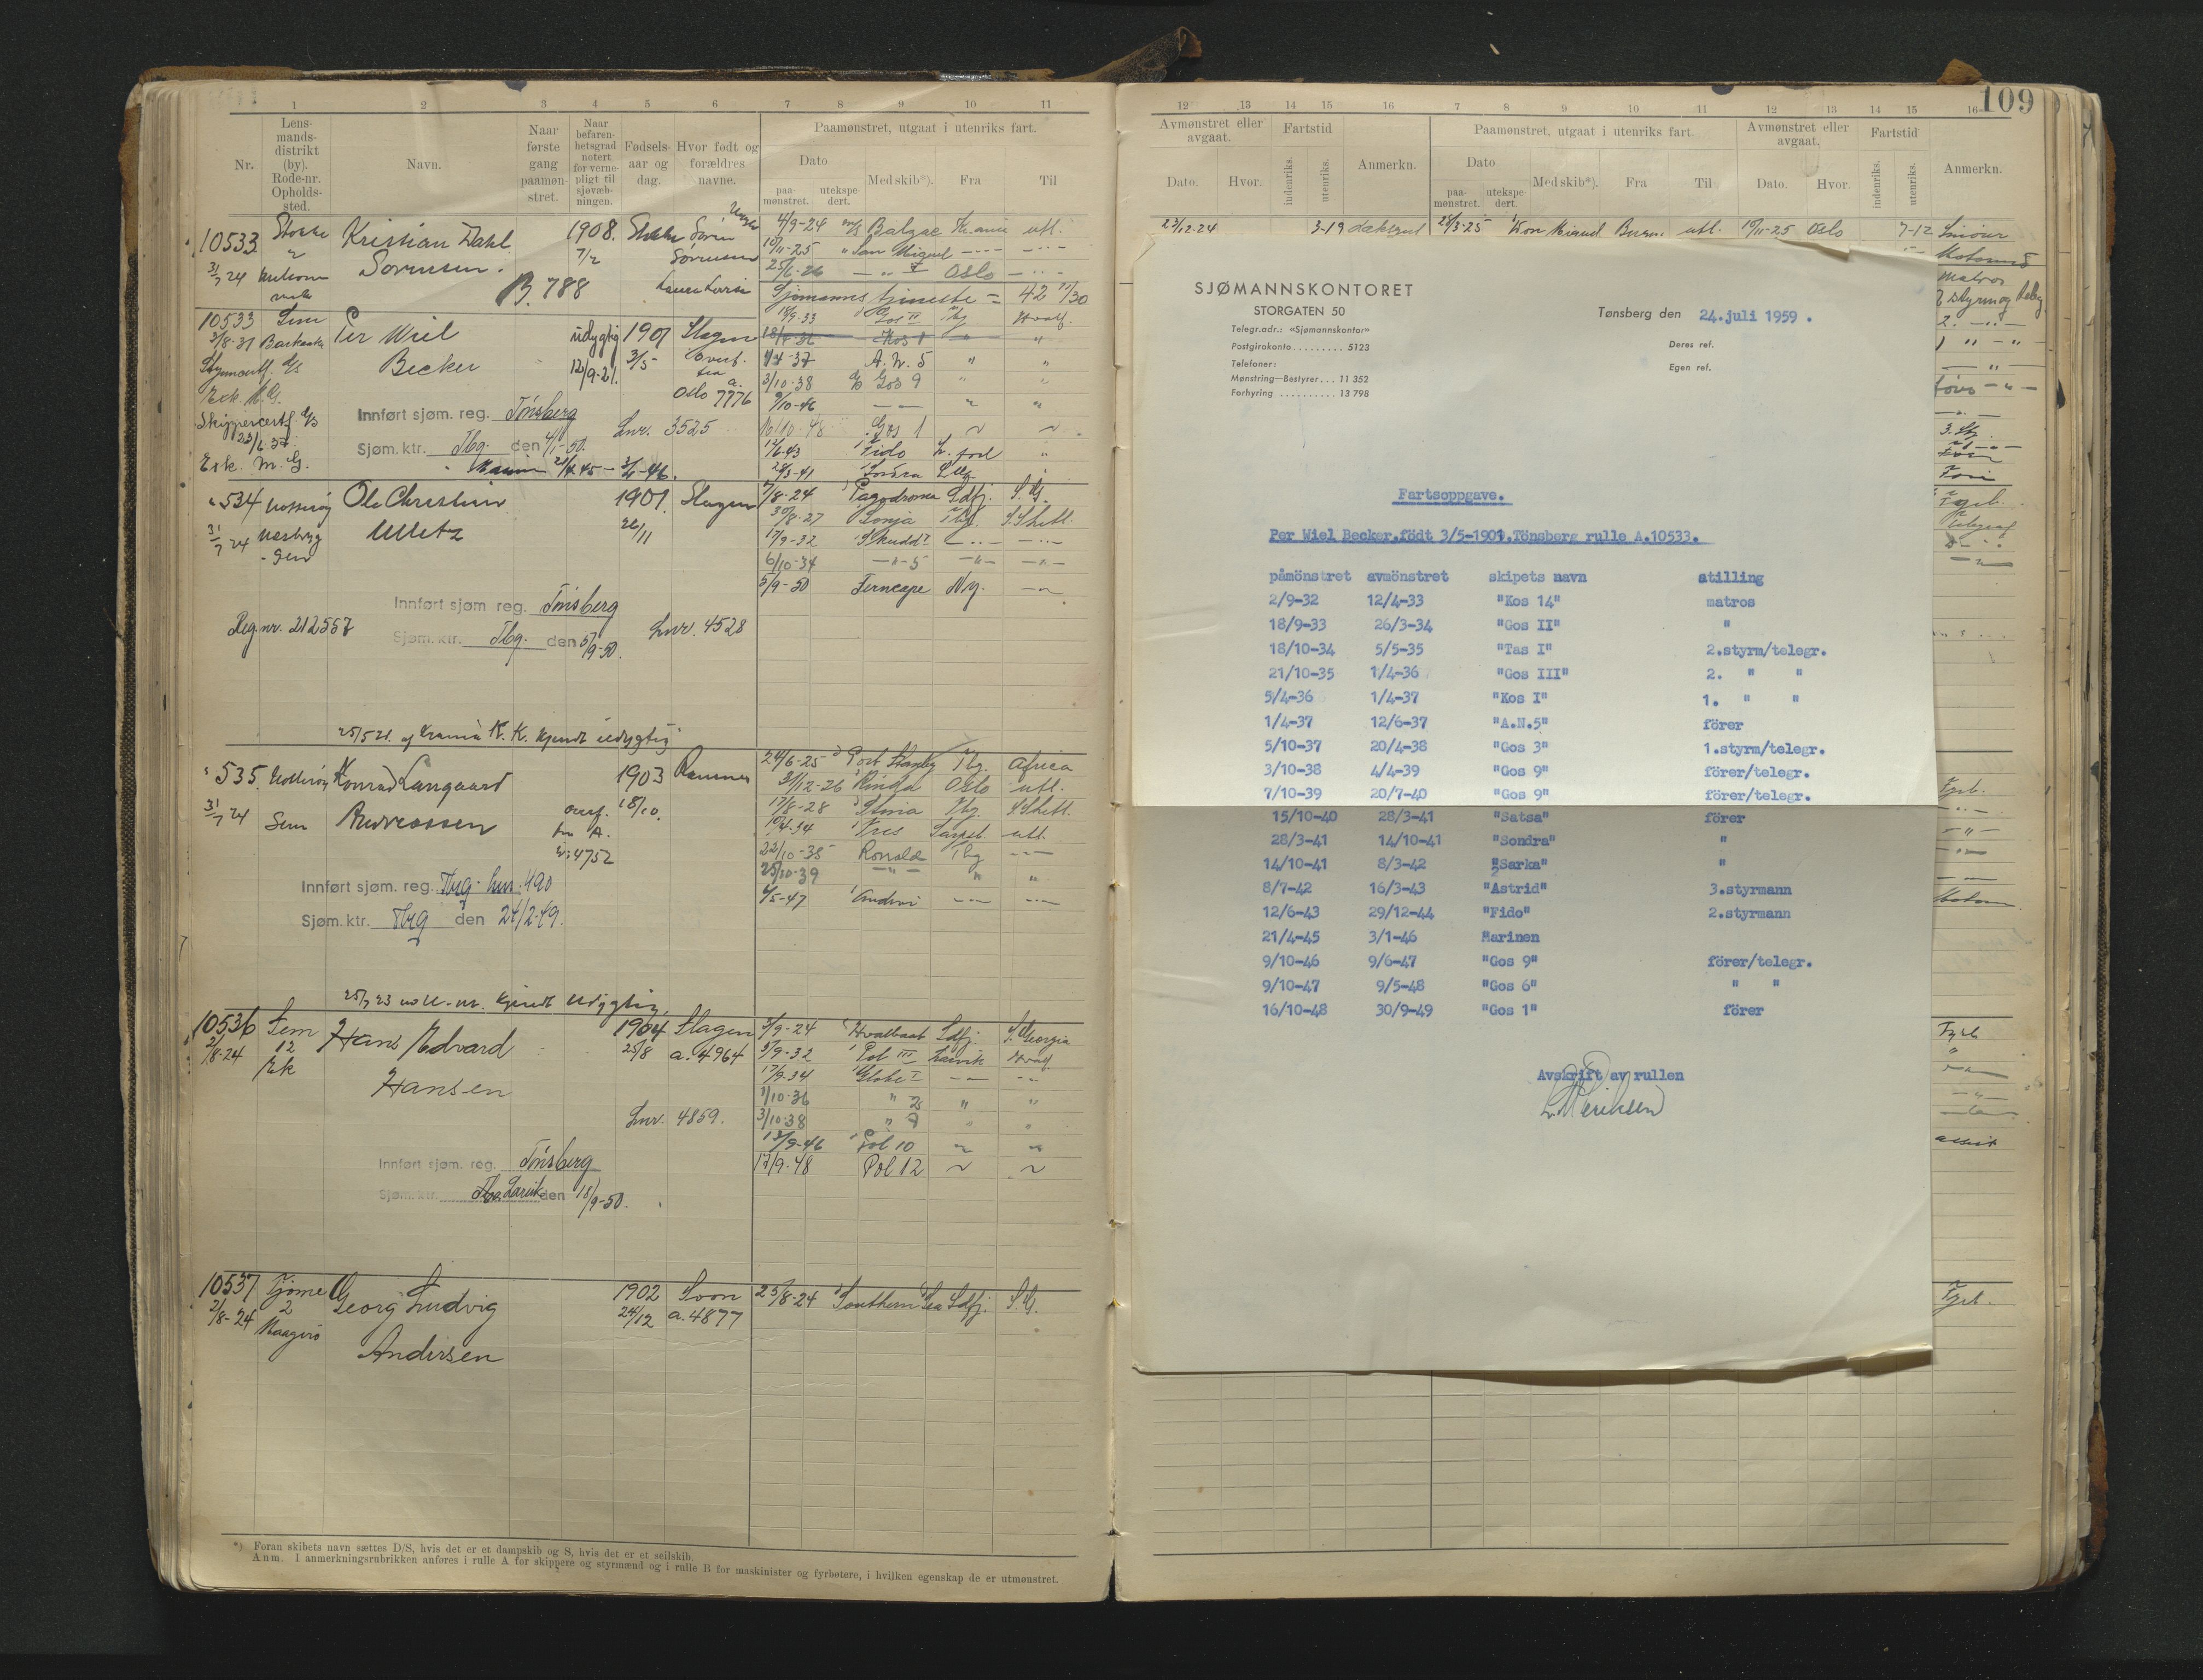 109
1 2 3 4 5 6 7 8 9 10 11
Nr.
Lens-
mands-
distrikt
(by).
Rode-nr.
Opholds-
sted.
Navn.
Naar
første
gang
paamøn-
stret.
Naar
befaren-
hetsgrad
notert
for verne-
pligt til
sjøvæb-
ningen.
Fødsels-
aar og
dag.
Hvor født og
forældres
navne.
Paamønstret, utgaat i utenriks fart.
Dato
paa-
mønstret.
utekspe-
dert.
Med skib*).
Fra
Til
10533 Stokke Kristian Dahl 1908. Stokke Søren
2 Sørensen. 7/2 Sørensen
31/7 24 B. 788
4/9-24 Balzac Kr.ania utl.
10/11-25 San Miguel
25/6-26 Oslo
Sjømannstjeneste = 42 11/30
10533 Sem Per Wiel udygtig 1901 Slagen
3/8-31 Becker 12/9-21. 3/5 Overf.
fra
a.
Oslo 7776
Innført sjøm. reg. Tönsberg Lnr. 3525
Sjøm. ktr. Tbg. den 4/1-50.
Esk. M. G. Marinen 21/4 45 - 3/1-46.
18/9-33 Gos II Tbg Hvalf.
Kos 1
1/4-37 A. N. 5 " "
3/10-38 Gos 9 " "
9/10-46
16/10-48 Gos 1
12/6-43 Fido
28/3-41 Sondra
534 Nøtterøy Ole Christian 1901 Slagen
31/7 24 Ulletz 26/11
7/8-24 Pagodroma Sdfj. S. G.
30/8-27 Sonja Tbg. S. Shetl.
17/9-32 Skudd
6/10-34 5
5/9-50 Ferncape
Innført sjøm. reg. Tönsberg
Reg. nr. 212557 Sjøm. ktr. Tbg. den 5/9-50. Lnr. 4528
25/5 21. af Krania K. K. kjendt udygtig
535. Nøtterøy Konrad Langaard 1903 Ramnes
31/7 24 Sem Andreassen 18/10.
Overf.
fra A.
4752
24/6-25 Port Stanley Tbg. Africa
31/12-26 Rinda Oslo utl.
17/8-28 Tbg. S. Shetl.
10/4-34 utl.
22/10-35 Ronald Tbg
25/10-39
6/5-47
Innført sjøm. reg. Tbg. lnr. 490
Sjøm. ktr. Tbg den 24/2-49.
kjendt udygtig
10536 Sem Hans Edvard 1904 Slagen
2/8-24 12 Hansen 25/8 a. 4964
Ek
Lnr. 4859.
3/9-24 Hvalbaat Sdfj. S. Georgia
5/9-32 Pol III Larvik Hvalf.
17/9-34 Globe I
1/10-36 " 2 " "
3/10-38 " 7 " "
13/9-46 Pol 10
17/9-48 Pol 12
Innført sjøm. reg. Tönsberg
Sjøm. ktr. Larvik den 18/9-50.
10537 Tjøme Georg Ludvig 1902 Soon 23/8-24 Southern Sea Sdfj. S. G.
2/8-24 2 Andersen 24/12 a. 4877
*) Foran skibets navn sættes D/S, hvis det er et dampskib og S, hvis det er et seilskib.
Anm. I anmerkningsrubrikken anføres i rulle A for skippere og styrmænd og i rulle B for maskinister og fyrbøtere, i hvilken egenskap de er utmønstret.
12 13 14 15 16 7 8 9 10 11 12 13 14 15 16
Avmønstret eller
avgaat.
Dato. Hvor.
Fartstid
indenriks. utenriks.
Anmerkn.
Paamønstret, utgaat i utenriks fart.
Dato
paa-
mønstret.
utekspe-
dert.
Med skib*).
Fra
Til
Avmønstret eller
avgaat.
Dato. Hvor.
Fartstid
indenriks. utenriks.
Anmerkn.
23/12-24 3-19 28/3-25 utl. 10/11-25 Oslo 7-12
SJØMANNSKONTORET
STORGATEN 50
Telegr.adr.: «Sjømannskontor»
Postgirokonto . . . . . . . . . 5123
Telefoner:
Mønstring—Bestyrer . . . 11 352
Forhyring . . . . . . . . . . 13 798
Tønsberg den 24.juli 1959 .
Deres ref.
Egen ref.
Fartsoppgave.
Per Wiel Becker.födt 3/5-1901.Tönsberg rulle A.10533.
påmönstret avmönstret skipets navn stilling
2/9-32 12/4-33 "Kos 14" matros
18/9-33 26/3-34 "Gos II" "
18/10-34 5/5-35 "Tas I" 2.styrm/telegr.
21/10-35 1/4-36 "Gos III" 2. " "
5/4-36 1/4-37 "Kos I" 1. " "
1/4-37 12/6-37 "A.N.5" förer
5/10-37 20/4-38 "Gos 3" 1.styrm/telegr.
3/10-38 4/4-39 "Gos 9" förer/telegr.
7/10-39 20/7-40 "Gos 9" förer/telegr.
15/10-40 28/3-41 "Satsa" förer
28/3-41 14/10-41 "Sondra" "
14/10-41 8/3-42 "Sarka" "
8/7-42 16/3-43 "Astrid" 3.styrmann
12/6-43 29/12-44 "Fido" 2.styrmann
21/4-45 3/1-46 Marinen
9/10-46 9/6-47 "Gos 9" förer/telegr.
9/10-47 9/5-48 "Gos 6" " "
16/10-48 30/9-49 "Gos 1" förer
Avskrift av rullen